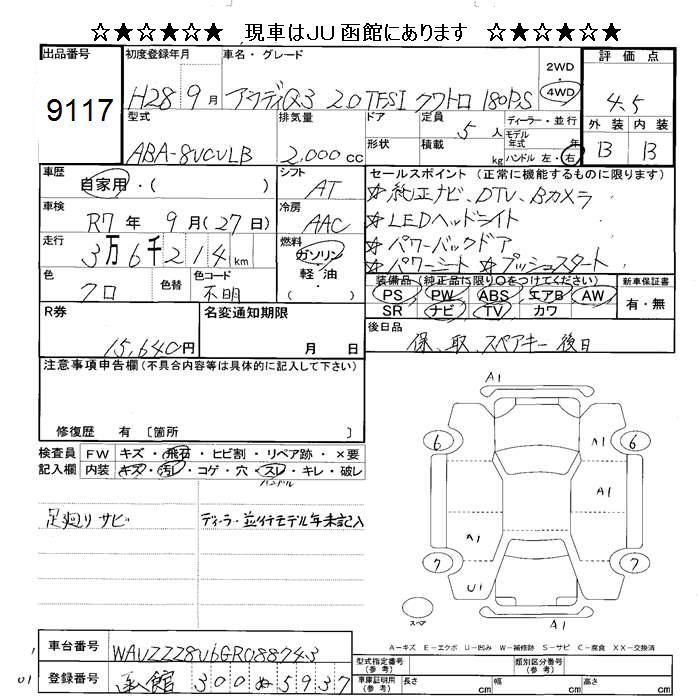 ☆★☆★☆★ 現車はJU函館にあります ☆★☆★☆★
出品番号
9117
初度登録年月
H28 9月
車名・グレード
アウディQ3 2.0 TFSI クワトロ 180PS
2WD
4WD
評価点
4.5
外装 内装
B B
型式
ABA-8UCULB
排気量
2,000cc
ドア
形状
定員
5人
積載
kg
ディーラー・並行
モデル
年式 年
ハンドル 左・右
車歴
自家用・( )
シフト
AT
車検
R7年 9月(27日)
冷房
AAC
走行
3万6千214km
燃料
ガソリン
軽油
・( )
色
クロ
色替
色コード
不明
セールスポイント (正常に機能するものに限ります)
☆純正ナビ、DTV、Bカメラ
☆LEDヘッドライト
☆パワーバックドア
☆パワーシート ☆プッシュスタート
装備品 (純正品に限り○をつけてください)
PS PW ABS エアB AW
SR ナビ TV カワ
新車保証書
有・無
R券
15,640円
名変通知期限
月 日
後日品
保、取、スペアキー後日
注意事項申告欄(不具合内容等は具体的に記入して下さい)
修復歴 有 〔箇所 〕
検査員
記入欄
FW キズ・飛石・ヒビ割・リペア跡・×要
内装 キズ・汚れ・コゲ・穴・スレ・キレ・破レ
ハンドル
足廻りサビ
ディーラー・並行モデル年未記入
A1
6
A1
6
A1
A1
7
7
U1
A1
スペア
A−キズ E−エクボ U−凹み W−補修跡 S−サビ C−腐食 XX−交換済
車台番号
WAUZZZ8U6GR088743
登録番号
函館 300 ぬ 5937
型式指定番号
(参考)
類別区分番号
(参考)
車庫証明用
(参考)
長さ cm
幅 cm
高さ cm
01